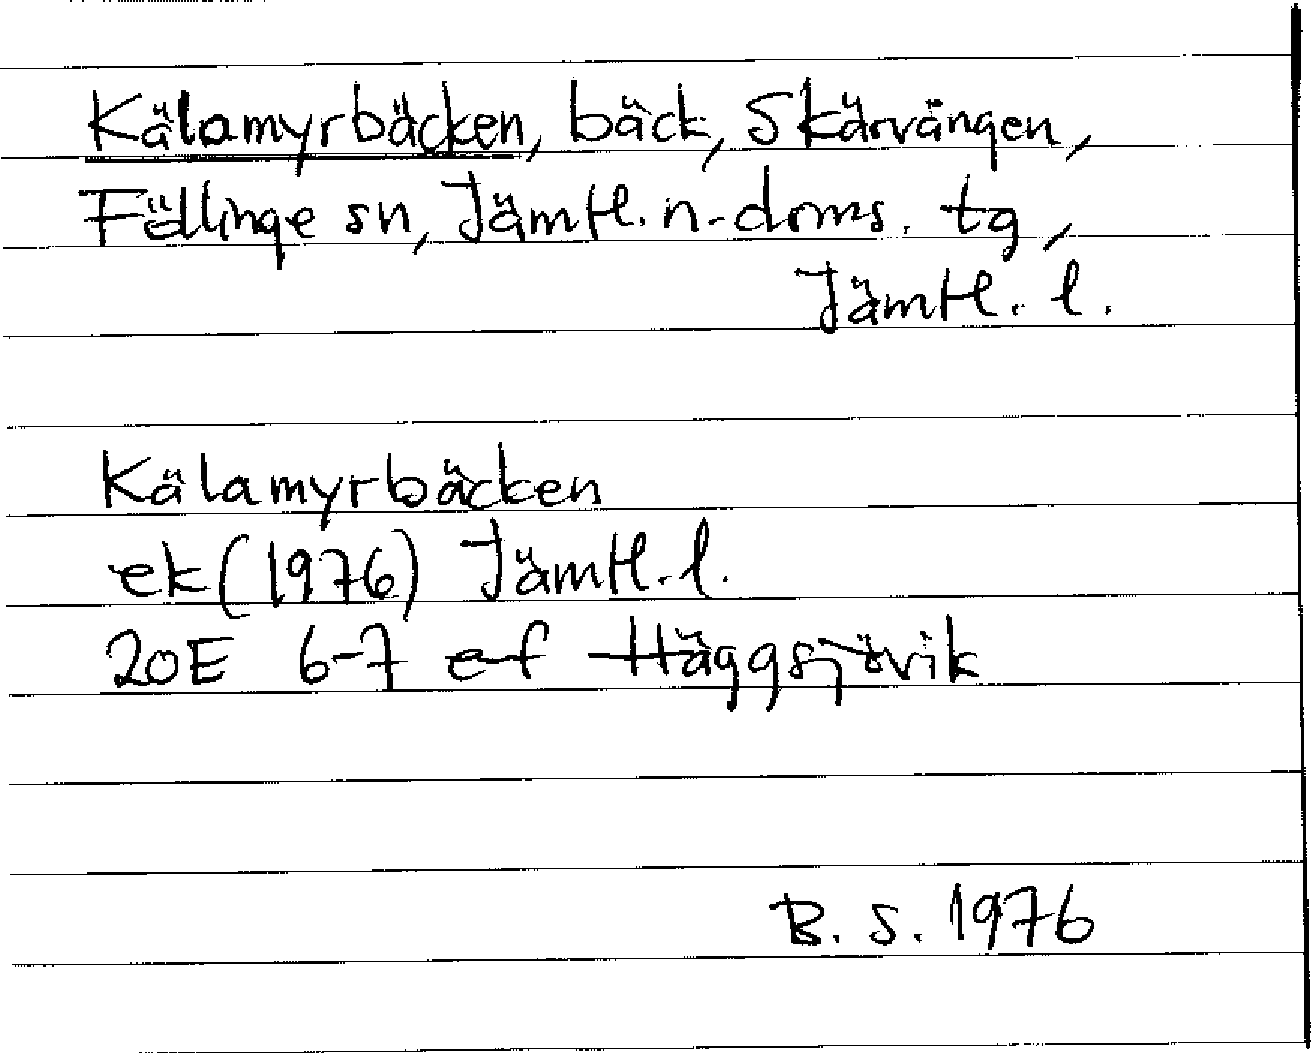 Kälamyrbäcken, bäck, Skärvången,
Föllinge sn, Jämtl. n. doms. tg,
Jämtl. l.
Kälamyrbäcken
ek (1976) Jämtl. l.
20E 6-7 ef Häggsjövik
B. S. 1976